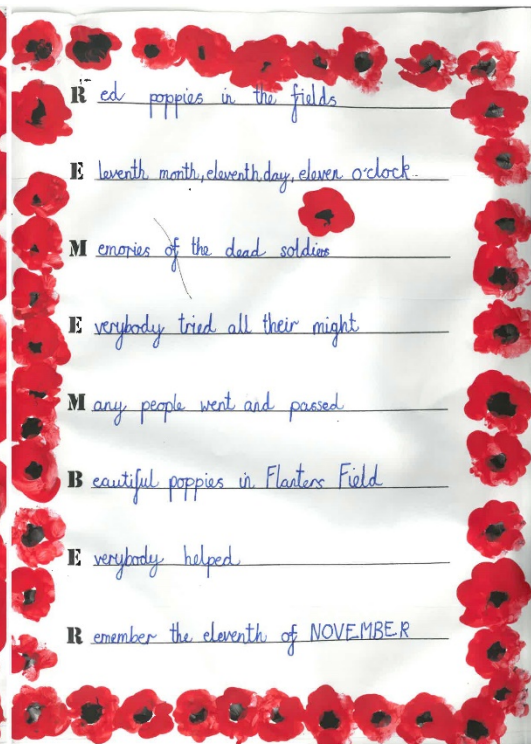 Red poppies in the fields
Eleventh month, eleventh day, eleven o'clock.
Memories of the dead soldiers
Everybody tried all their might
Many people went and passed
Beautiful poppies in Flanters Field
Everybody helped
Remember the eleventh of NOVEMBER